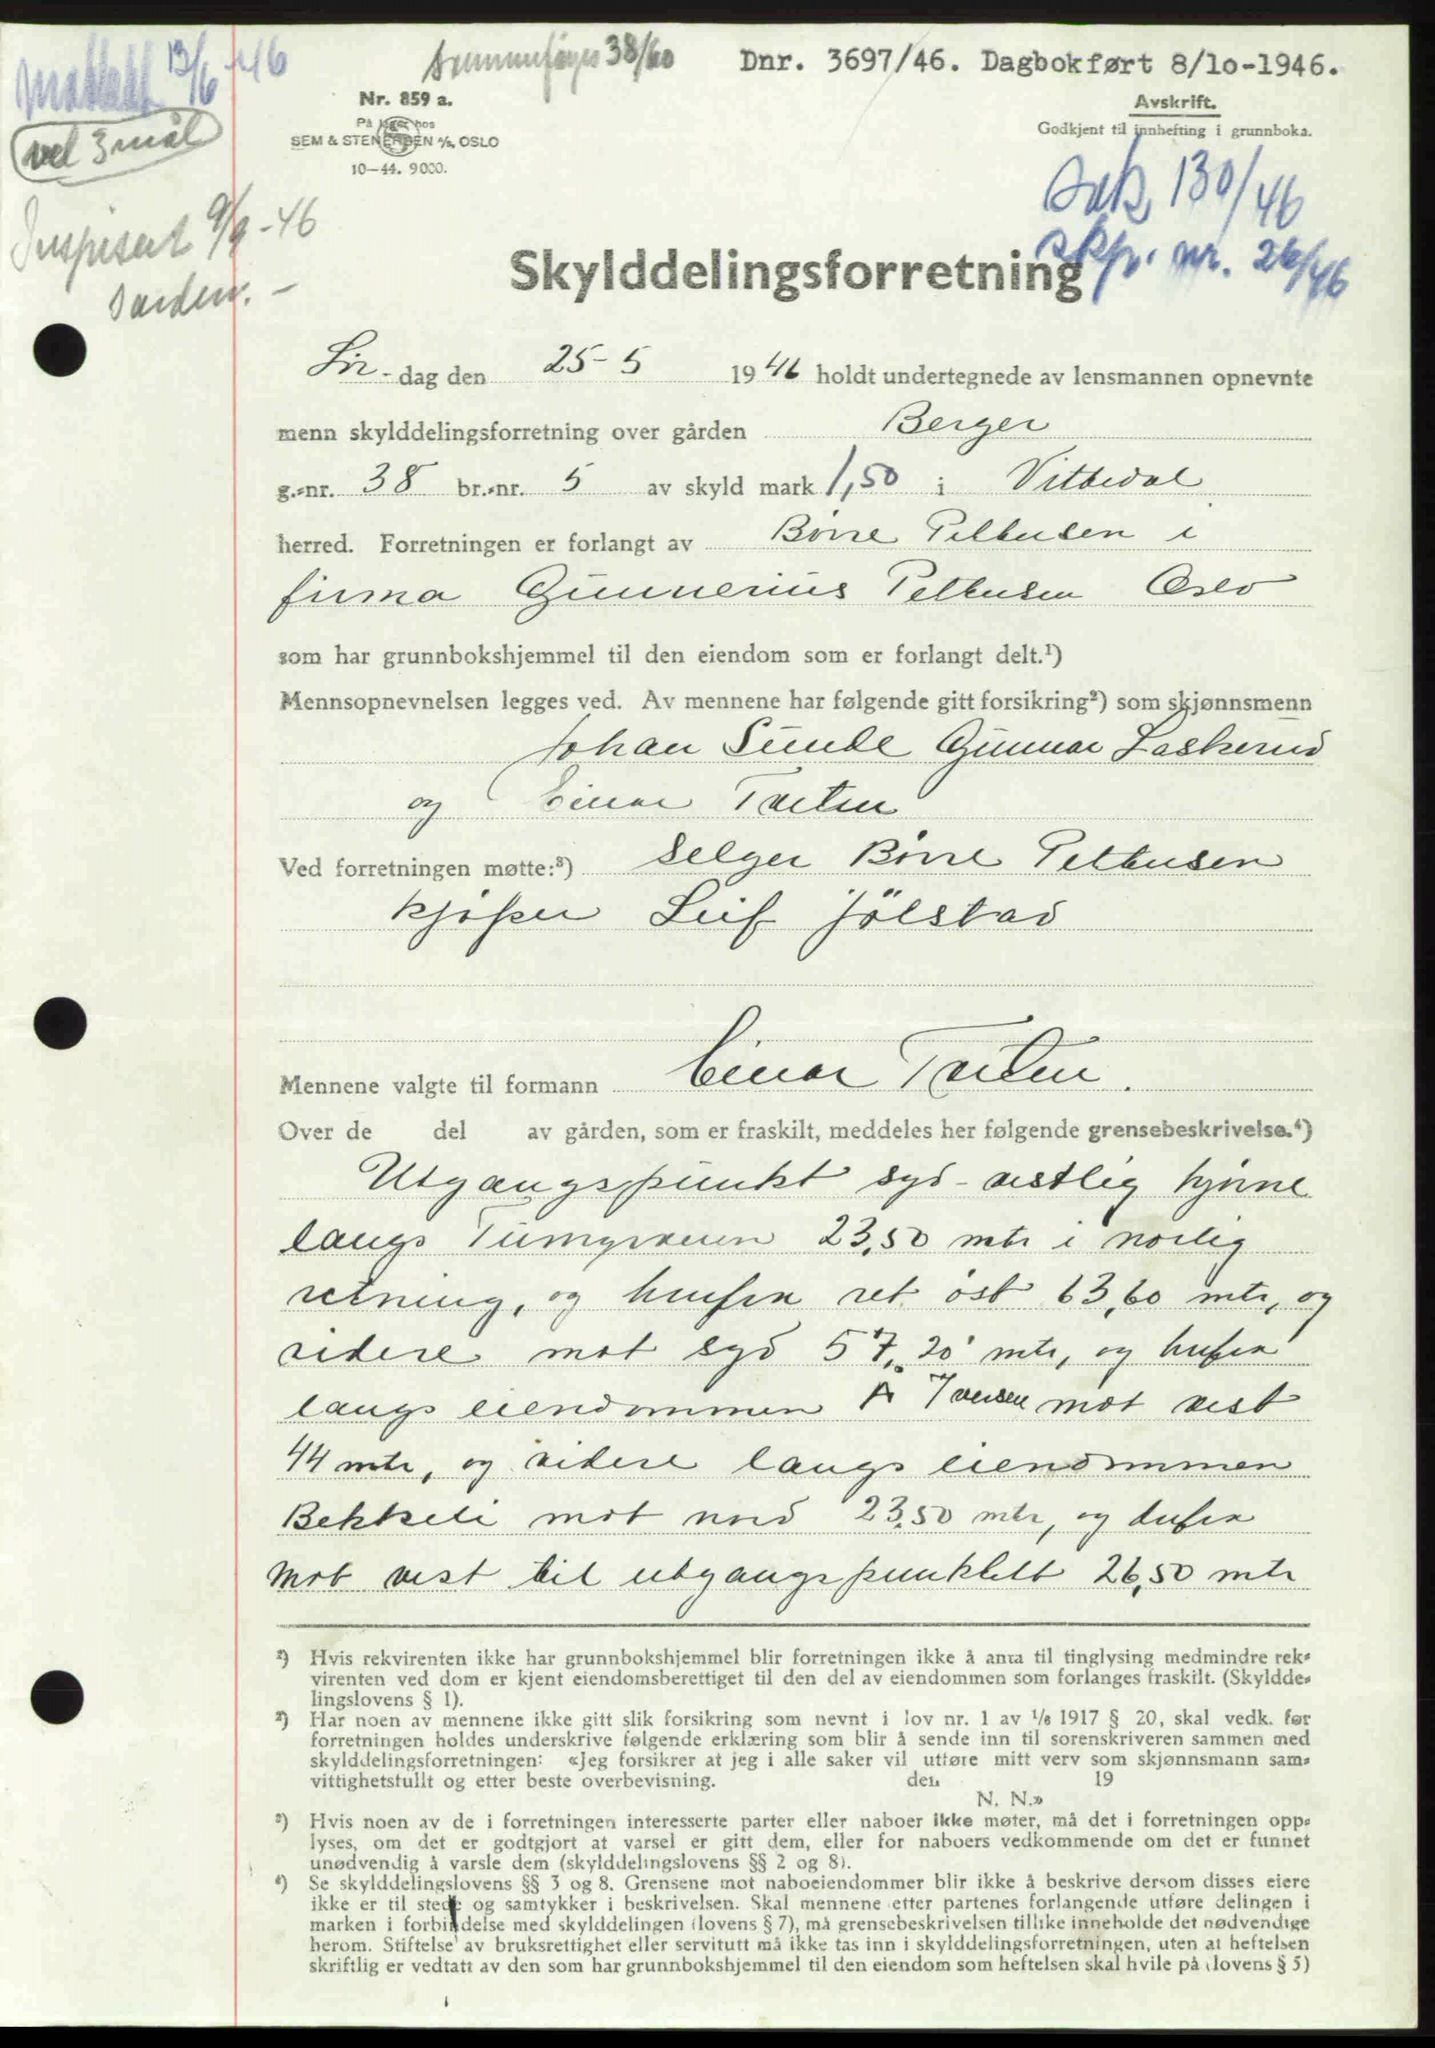 Mottatt 13/6-46
Sammenføyes 38/60
Dnr. 3697/46. Dagbokført 8/10-1946.
vel 3 mål
Nr. 859 a.
På lager hos
SEM & STENERSEN A/S, OSLO
10—44. 9000.
Avskrift.
Godkjent til innhefting i grunnboka.
sak 130/46
skp. nr. 26/46
Inspisert 9/9-46
Skylddelingsforretning
Lør-dag den 25-5 1946 holdt undertegnede av lensmannen opnevnte
menn skylddelingsforretning over gården Berger
g.-nr. 38 br.-nr. 5 av skyld mark 1,50 i Nittedal
herred. Forretningen er forlangt av Børre Pettersen i
firma Gunnerius Pettersen Oslo
som har grunnbokshjemmel til den eiendom som er forlangt delt.¹)
Mennsopnevnelsen legges ved. Av mennene har følgende gitt forsikring²) som skjønnsmenn
Johan Sunde Gunnar Laskerud
og Einar Tveten
Ved forretningen møtte:³) Selger Børre Pettersen
kjøper Leif Jølstad
Mennene valgte til formann Einar Tveten.
Over de del av gården, som er fraskilt, meddeles her følgende grensebeskrivelse.⁴)
Utgangspunkt syd-vestlig hjørne
langs 23,50 mtr i nordlig
retning, og herfra ret øst 63,60 mtr, og
videre mot syd 57,20 mtr, og herfra
langs eiendommen A Iversen mot vest
44 mtr, og videre langs eiendommen
Bekkeli mot nord 23,50 mtr, og derfra
mot vest til utgangspunktett 26,50 mtr
¹) Hvis rekvirenten ikke har grunnbokshjemmel blir forretningen ikke å anta til tinglysing medmindre rek-
virenten ved dom er kjent eiendomsberettiget til den del av eiendommen som forlanges fraskilt. (Skyldde-
lingslovens § 1).
²) Har noen av mennene ikke gitt slik forsikring som nevnt i lov nr. 1 av 1/6 1917 § 20, skal vedk. før
forretningen holdes underskrive følgende erklæring som blir å sende inn til sorenskriveren sammen med
skylddelingsforretningen: «Jeg forsikrer at jeg i alle saker vil utføre mitt verv som skjønnsmann sam-
vittighetsfullt og etter beste overbevisning. den 19
N. N.»
³) Hvis noen av de i forretningen interesserte parter eller naboer ikke møter, må det i forretningen opp-
lyses, om det er godtgjort at varsel er gitt dem, eller for naboers vedkommende om det er funnet
unødvendig å varsle dem (skylddelingslovens §§ 2 og 8).
⁴) Se skylddelingslovens §§ 3 og 8. Grensene mot naboeiendommer blir ikke å beskrive dersom disses eiere
ikke er til stede og samtykker i beskrivelsen. Skal mennene etter partenes forlangende utføre delingen i
marken i forbindelse med skylddelingen (lovens § 7), må grensebeskrivelsen tillike inneholde det nødvendige
herom. Stiftelse av bruksrettighet eller servitutt må ikke tas inn i skylddelingsforretningen, uten at heftelsen
skriftlig er vedtatt av den som har grunnbokshjemmel til den eiendom som heftelsen skal hvile på (lovens § 5)